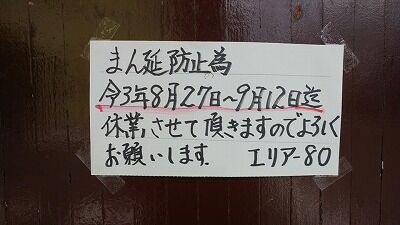 まん延防止為
令3年8月27日～9月12日迄
休業させて頂きますのでよろしく
お願いします. エリア-80